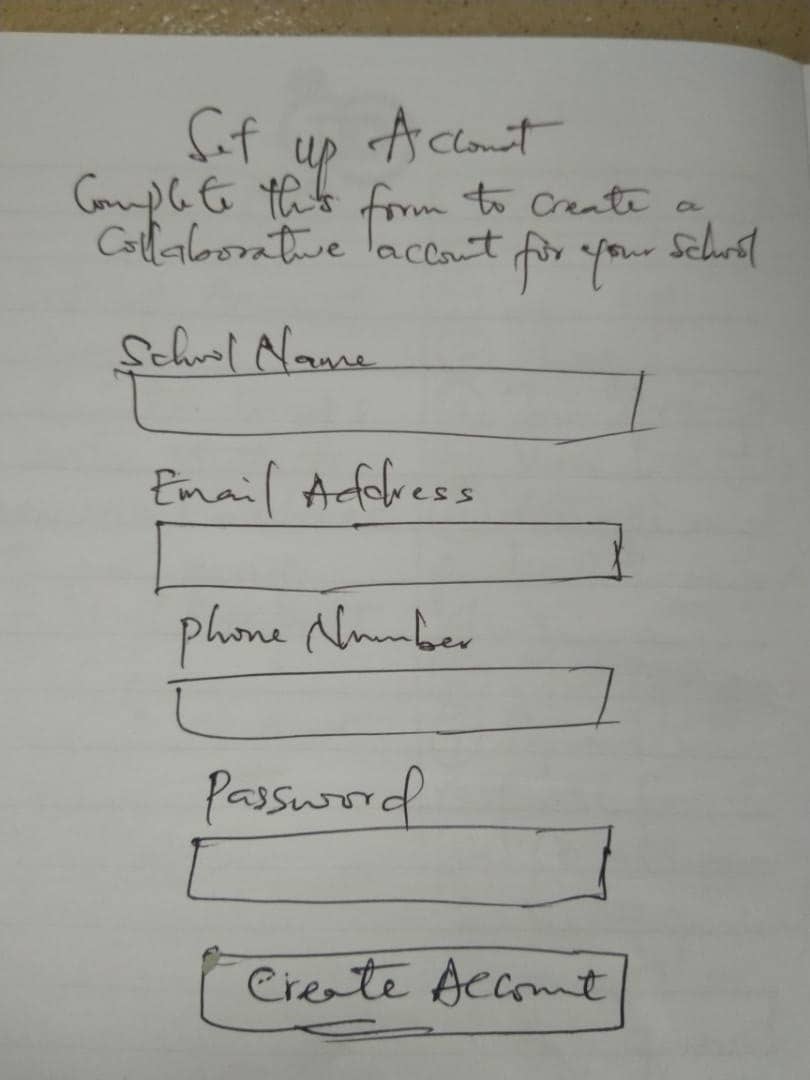 Set up Account
Complete this form to create a
Collaborative account for your School
School Name
Email Address
Phone Number
Password
Create Account